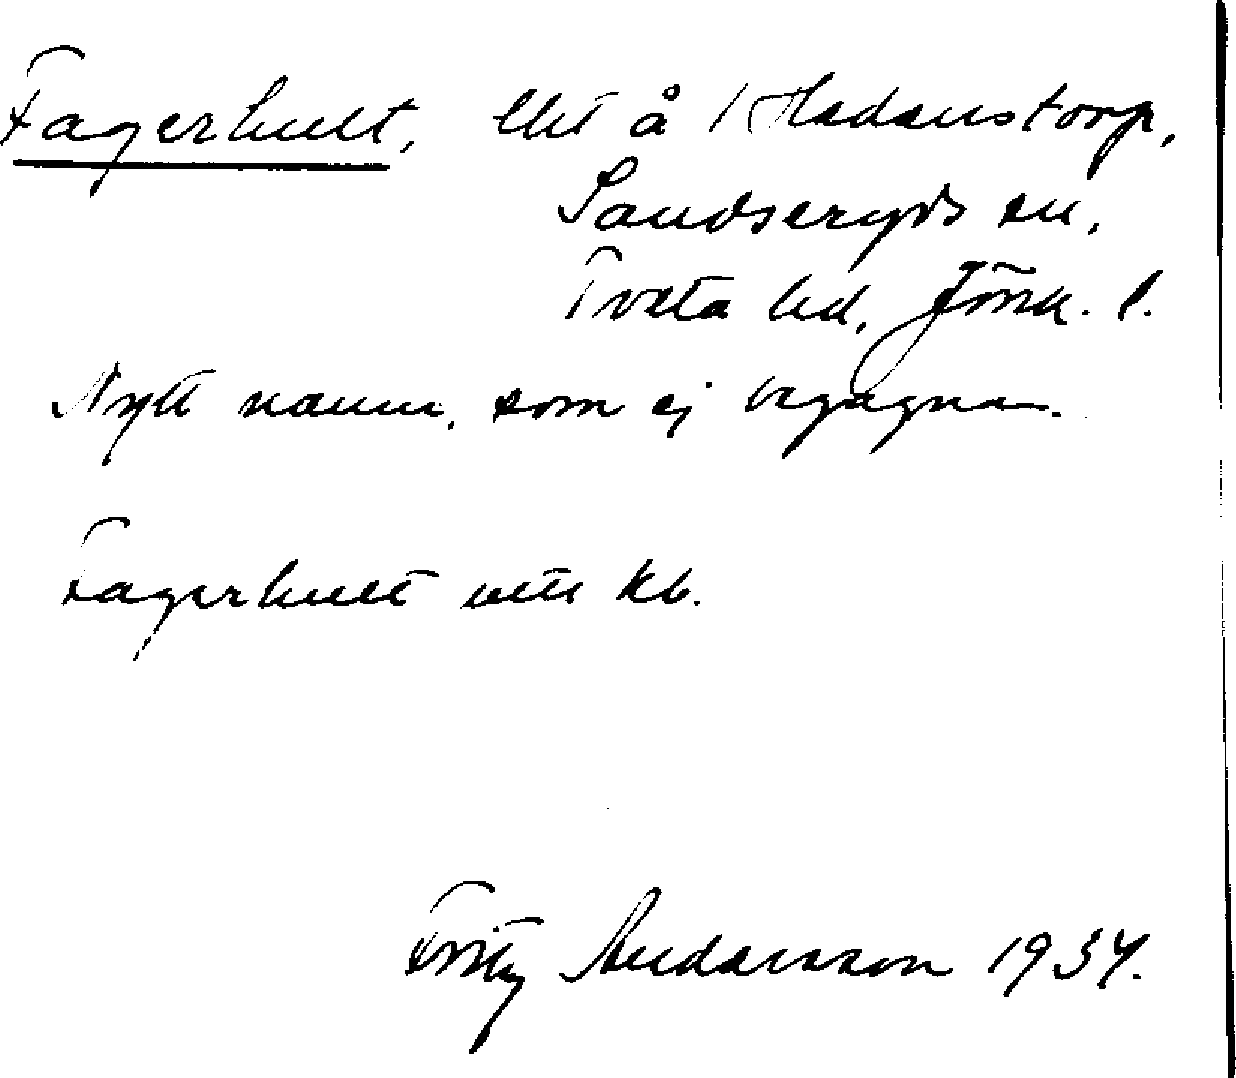 Fagerhult, lht å 1 Hedenstorp,
Sandseryds sn,
Tveta hd, Jönk. l.
Nytt namn, som ej begagnas.
Fagerhult kb.
Fritz Andersson 1934.